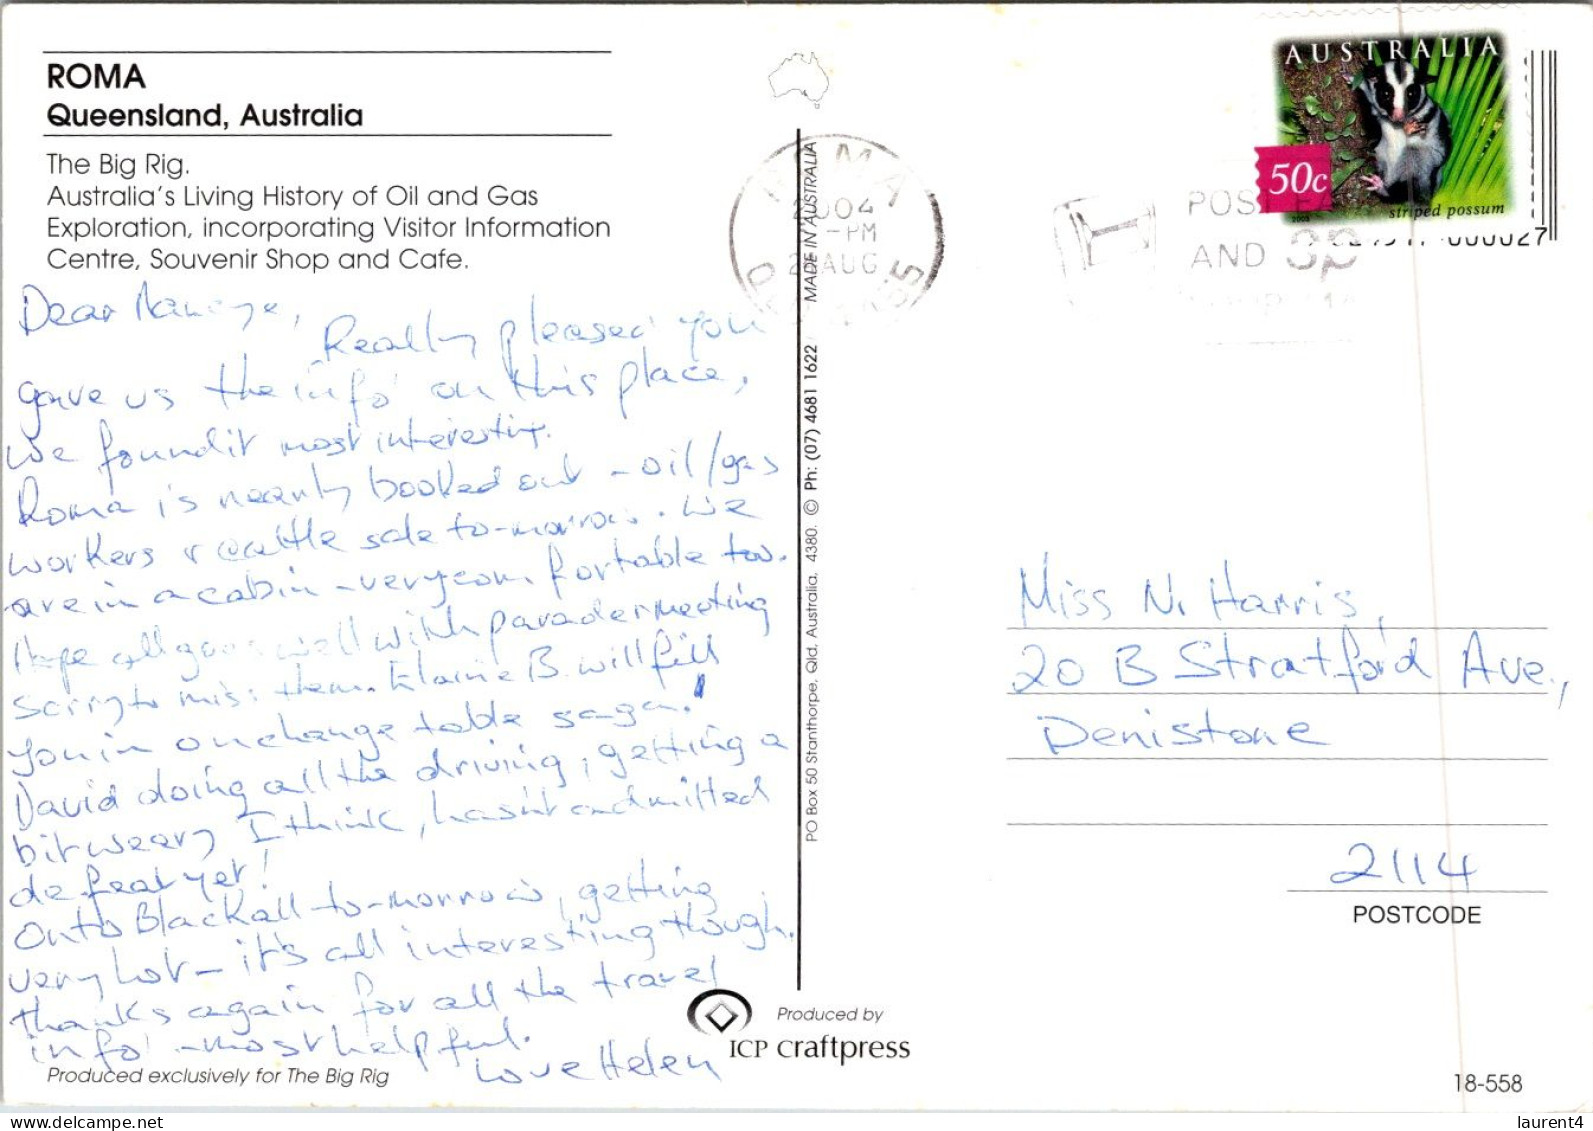 ROMA
Queensland, Australia
The Big Rig.
Australia's Living History of Oil and Gas
Exploration, incorporating Visitor Information
Centre, Souvenir Shop and Cafe.
Dear
Really pleased you
gave us the info' on this place,
we found it most interesting.
Roma is nearly booked out - oil/gas
workers & cattle sale to-morrow. We
are in a cabin - very comfortable too.
Hope all goes well with parade meeting
sorry to miss them. Elaine B. will fill
you in on change table saga!
David doing all the driving, getting a
bit weary I think, hasn't admitted
defeat yet!
Onto Blackall to-morrow, getting
very hot - it's all interesting though.
thanks again for all the travel
info' - most helpful.
Love Helen
Produced exclusively for The Big Rig
PO Box 50 Stanthorpe, Qld, Australia, 4380. © Ph: (07) 4681 1622 MADE IN AUSTRALIA
Produced by
ICP craftpress
ROMA
2004
-PM
AUG
POST
AND
AUSTRALIA
50c
2003
striped possum
000027
Miss N. Harris,
20 B Stratford Ave.,
Denistone
2114
POSTCODE
18-558
delcampe.net
laurent4